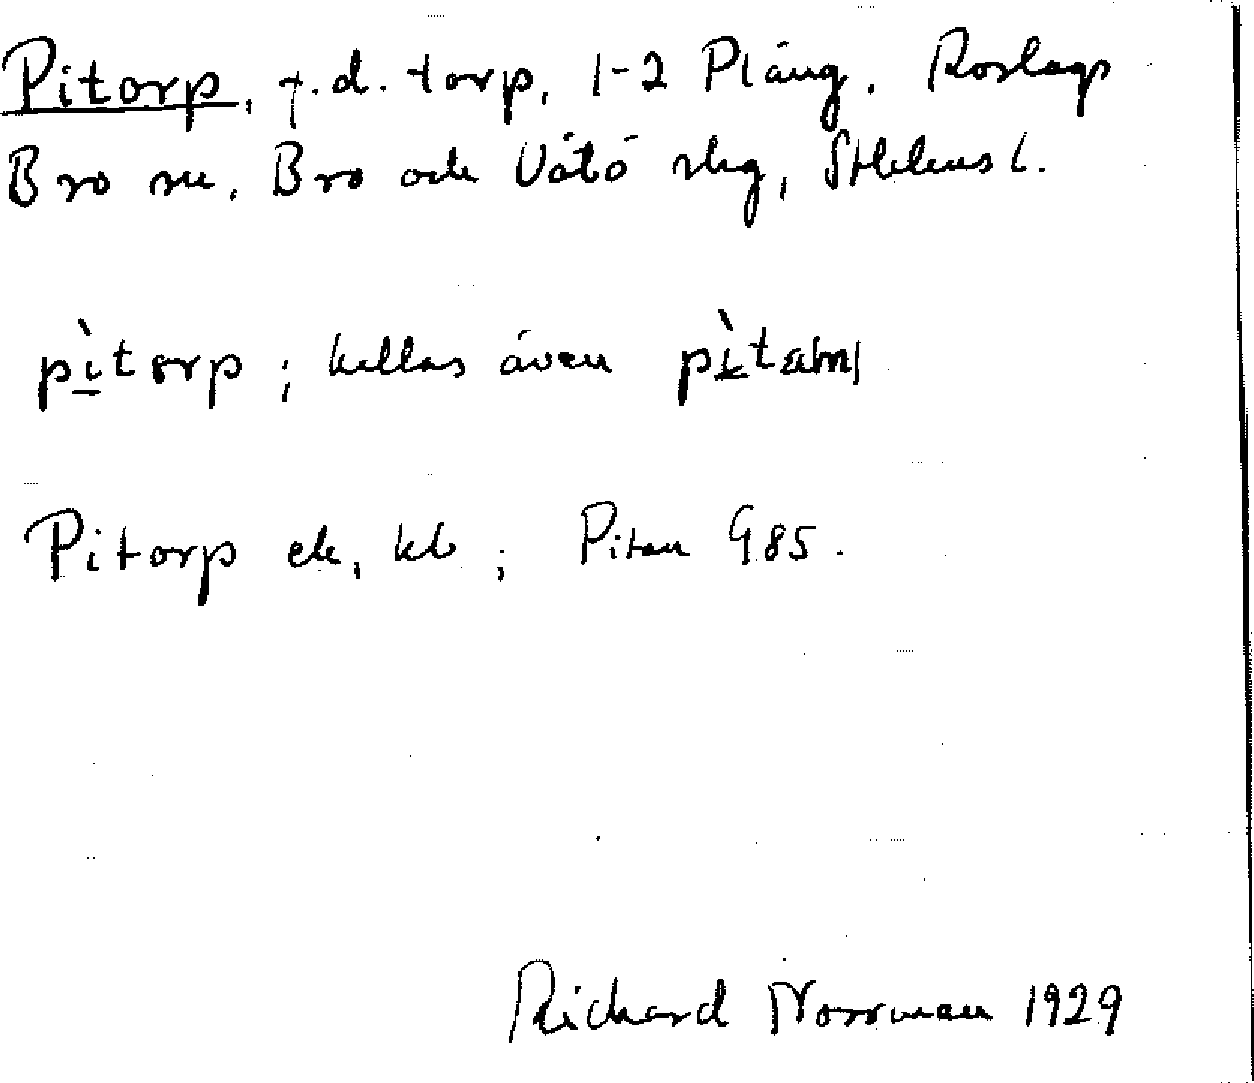 Pitorp, f.d. torp, 1-2 Pläng. Roslags
Bro sn. Bro och Vätö slg, Sthlms l.
pìtorp; kallas även
Pitorp ek, kb; Pitan G85.
Richard Norrman 1929